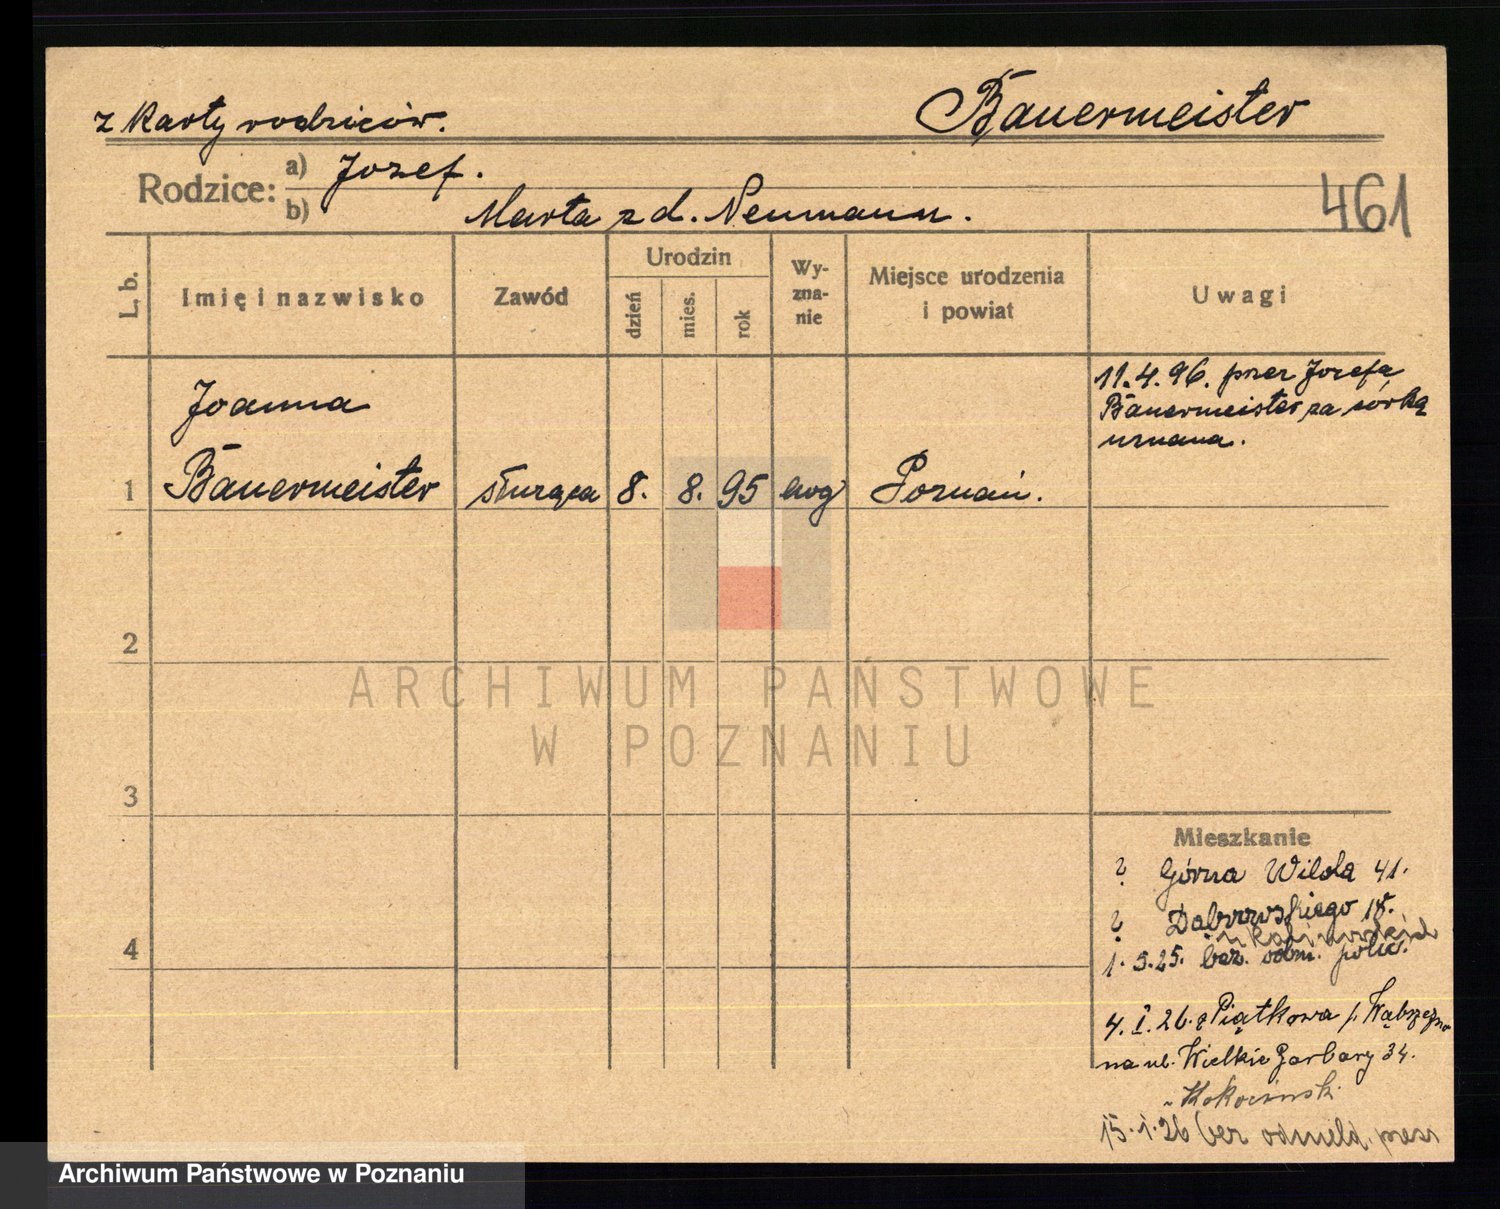 z karty rodziców.
Bauermeister
Rodzice: a) Józef.
b) Marta z d. Neumann.
461
L. b.
Imię i nazwisko
Zawód
Urodzin
dzień
mies.
rok
Wy-
zna-
nie
Miejsce urodzenia
i powiat
Uwagi
11.4.96. przez Józefa
Bauermeister za córkę
uznana.
Joanna
1 Bauermeister służąca 8. 8. 95 ewg Poznań.
2
ARCHIWUM PAŃSTWOWE
W POZNANIU
3
4
Mieszkanie
? Górna Wilda 41.
? Dąbrowskiego 18.
1.5.25. bez. odm. polic.
4.I.26. z Piątkowa p. Wąbrzeźno
na ul. Wielkie Garbary 34.
15.1.26 bez odmeld. przez
Archiwum Państwowe w Poznaniu